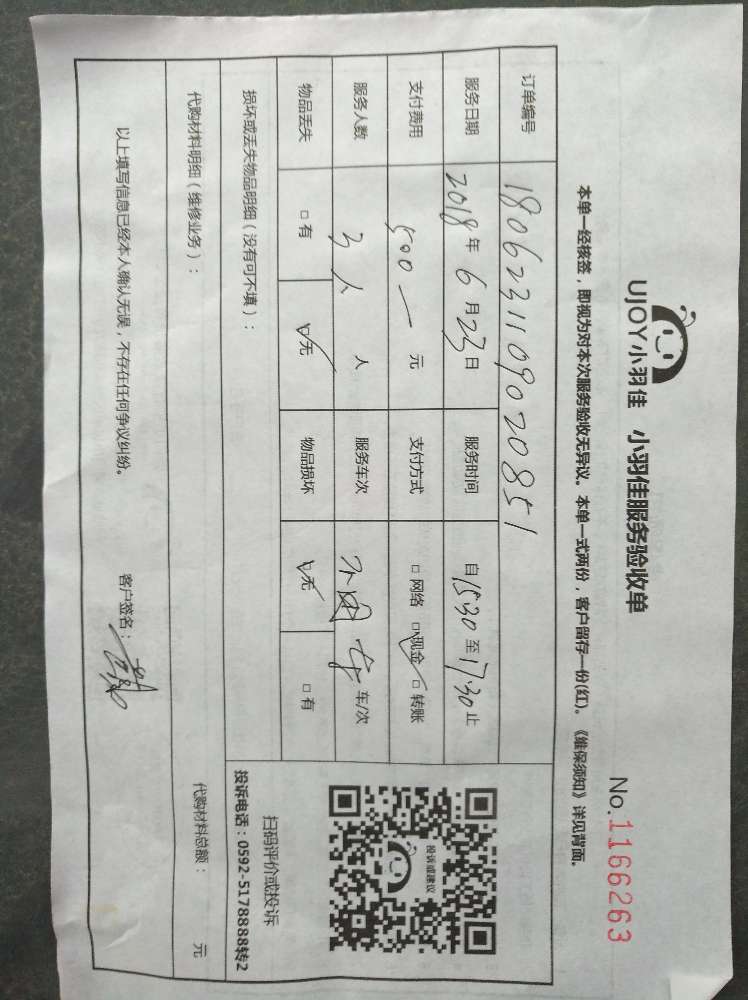 UJOY小羽佳 小羽佳服务验收单
No.1166263
本单一经核签，即视为对本次服务验收无异议。本单一式两份，客户留存一份(红)。《维保须知》详见背面。
订单编号 1806231109020851
服务日期 2018年6月23日 服务时间 自15:30至17:30止
支付费用 500一元 支付方式 □网络 ☑现金 □转账
服务人数 3人 人 服务车次 不用车 车/次
物品丢失 □有 ☑无 物品损坏 ☑无 □有
损坏或丢失物品明细（没有可不填）：
投诉或建议
扫码评价或投诉
投诉电话：0592-5178888转2
代购材料明细（维修业务）： 代购材料总额： 元
以上填写信息已经本人确认无误，不存在任何争议纠纷。 客户签名：